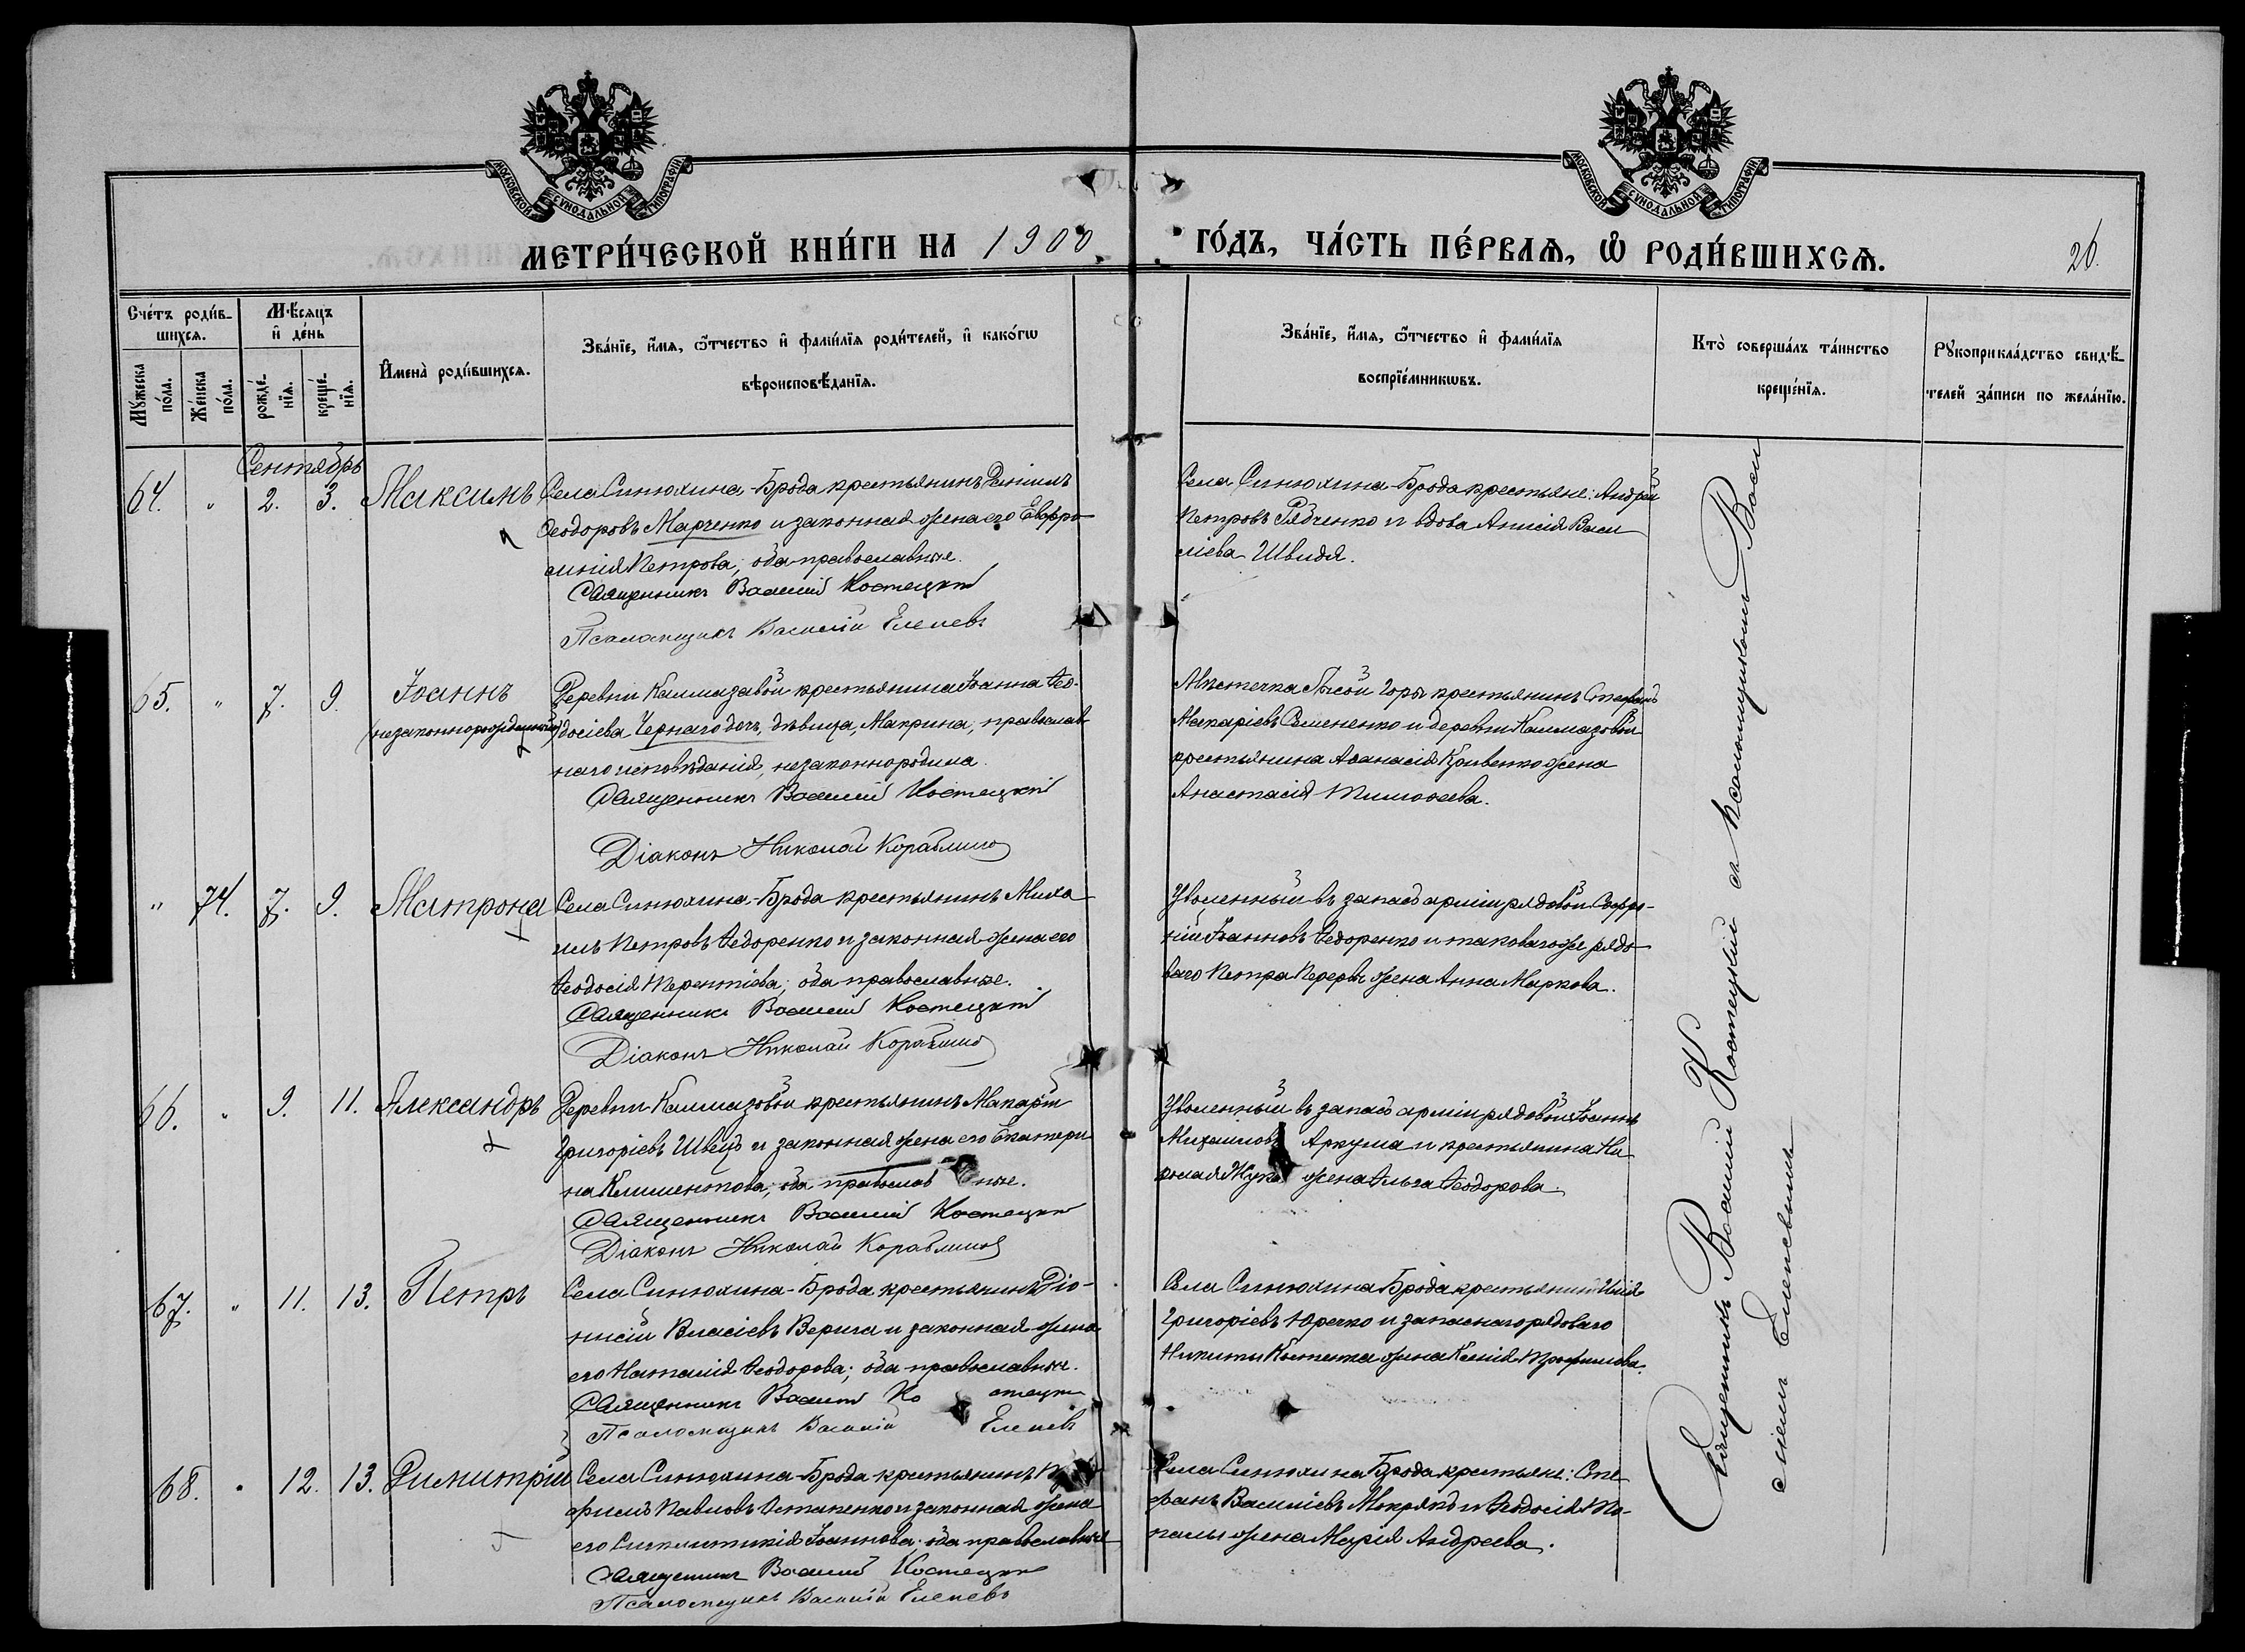 МОСКОВСКОЙ СУНОДАЛЬНОЙ ТИПОГРАФІИ
МОСКОВСКОЙ СУНОДАЛЬНОЙ ТИПОГРАФІИ
МЕТРИ́ЧЕСКОЙ КНИ́ГИ НА 1900.
ГО́ДЪ, ЧА́СТЬ ПЕ́РВАѦ, Ѿ РОДИ́ВШИХСѦ.
26.
Сче́тъ роди́в-
шихсѧ.
Мꙋ́жеска
по́ла.
Же́нска
по́ла.
Мѣ́сѧцъ
и҆ де́нь
рожде́-
нїѧ.
креще́-
нїѧ.
И҆мена̀ роди́вшихсѧ.
Зва́нїе, и҆́мѧ, ѻ҆́тчество и҆ фами́лїѧ роди́телей, и҆ како́гѡ
вѣроисповѣ́данїѧ.
Зва́нїе, и҆́мѧ, ѻ҆́тчество и҆ фами́лїѧ
воспрїе́мникѡвъ.
Кто̀ соверша́лъ та́инство
креще́нїѧ.
Рꙋкоприкла́дство свидѣ́-
телей за́писи по жела́нїю.
Сентябрь
64. " 2. 3. Максимъ
Села Синюхина-Брода крестьянинъ Даніилъ
Ѳеодоровъ Марченко и законная жена его Евфро-
синія Петрова; оба православные.
Священникъ Василій Костецкій
Псаломщикъ Василій Еленевъ
Села Синюхина-Брода крестьяне: Андрей
Петровъ Рядченко и вдова Анисія Васи
ліева Швидя.
65. " 7. 9. Іоаннъ
(незаконнорожденный)
Деревни Калмазовой крестьянина Іоанна Ѳео-
досіева Чернаго дочь, дѣвица, Макрина, православ
наго исповѣданія, незаконнородила.
Священникъ Василій Костецкій
Діаконъ Николай Кораблиновъ
Мѣстечка Лысой Горы крестьянинъ Стефанъ
Макаріевъ Семененко и деревни Калмазовой
крестьянина Аѳанасія Кривенко жена
Анастасія Тимоѳеева.
" 74. 7. 9. Матрона
Села Синюхина-Брода крестьянинъ Миха
илъ Петровъ Ѳедоренко и законная жена его
Ѳеодосія Терентіева; оба православные.
Священникъ Василій Костецкій
Діаконъ Николай Кораблиновъ
Уволенный въ запасъ арміи рядовой Софро-
ній Іоанновъ Ѳедоренко и таковагоже рядо
ваго Петра жена Анна Маркова.
66. " 9. 11. Александръ
Деревни Калмазовой крестьянинъ Макарій
Григоріевъ Швецъ и законная жена его Екатери
на Климентова; оба православные.
Священникъ Василій Костецкій
Діаконъ Николай Кораблиновъ
Уволенный въ запасъ арміи рядовой Іоаннъ
Михаиловъ Аркуша и крестьянина Ни
колая Жука жена Ѳеодорова.
67. " 11. 13. Петръ
Села Синюхина-Брода крестьянинъ Діо-
нисій Власіевъ Верига и законная жена
его Наталія Ѳеодорова; оба православные.
Священникъ Василій Костецкій
Псаломщикъ Василій Еленевъ
Села Синюхина Брода крестьянинъ Илія
Григоріевъ Юречко и запаснаго рядоваго
Никиты жена Ксенія Трофимова.
68. " 12. 13. Димитрій
Села Синюхина-Брода крестьянинъ Тро
фимъ Павловъ Остапенко и законная жена
его Синклитикія Іоаннова; оба православные
Священникъ Василій Костецкій
Псаломщикъ Василій Еленевъ
Села Синюхина Брода крестьяне: Сте
фанъ Василіевъ Мокрякъ и Ѳеодосія То-
палы жена Марія Андреева.
Священникъ Василій Костецкій съ псаломщикомъ Васи
ліемъ Еленевымъ